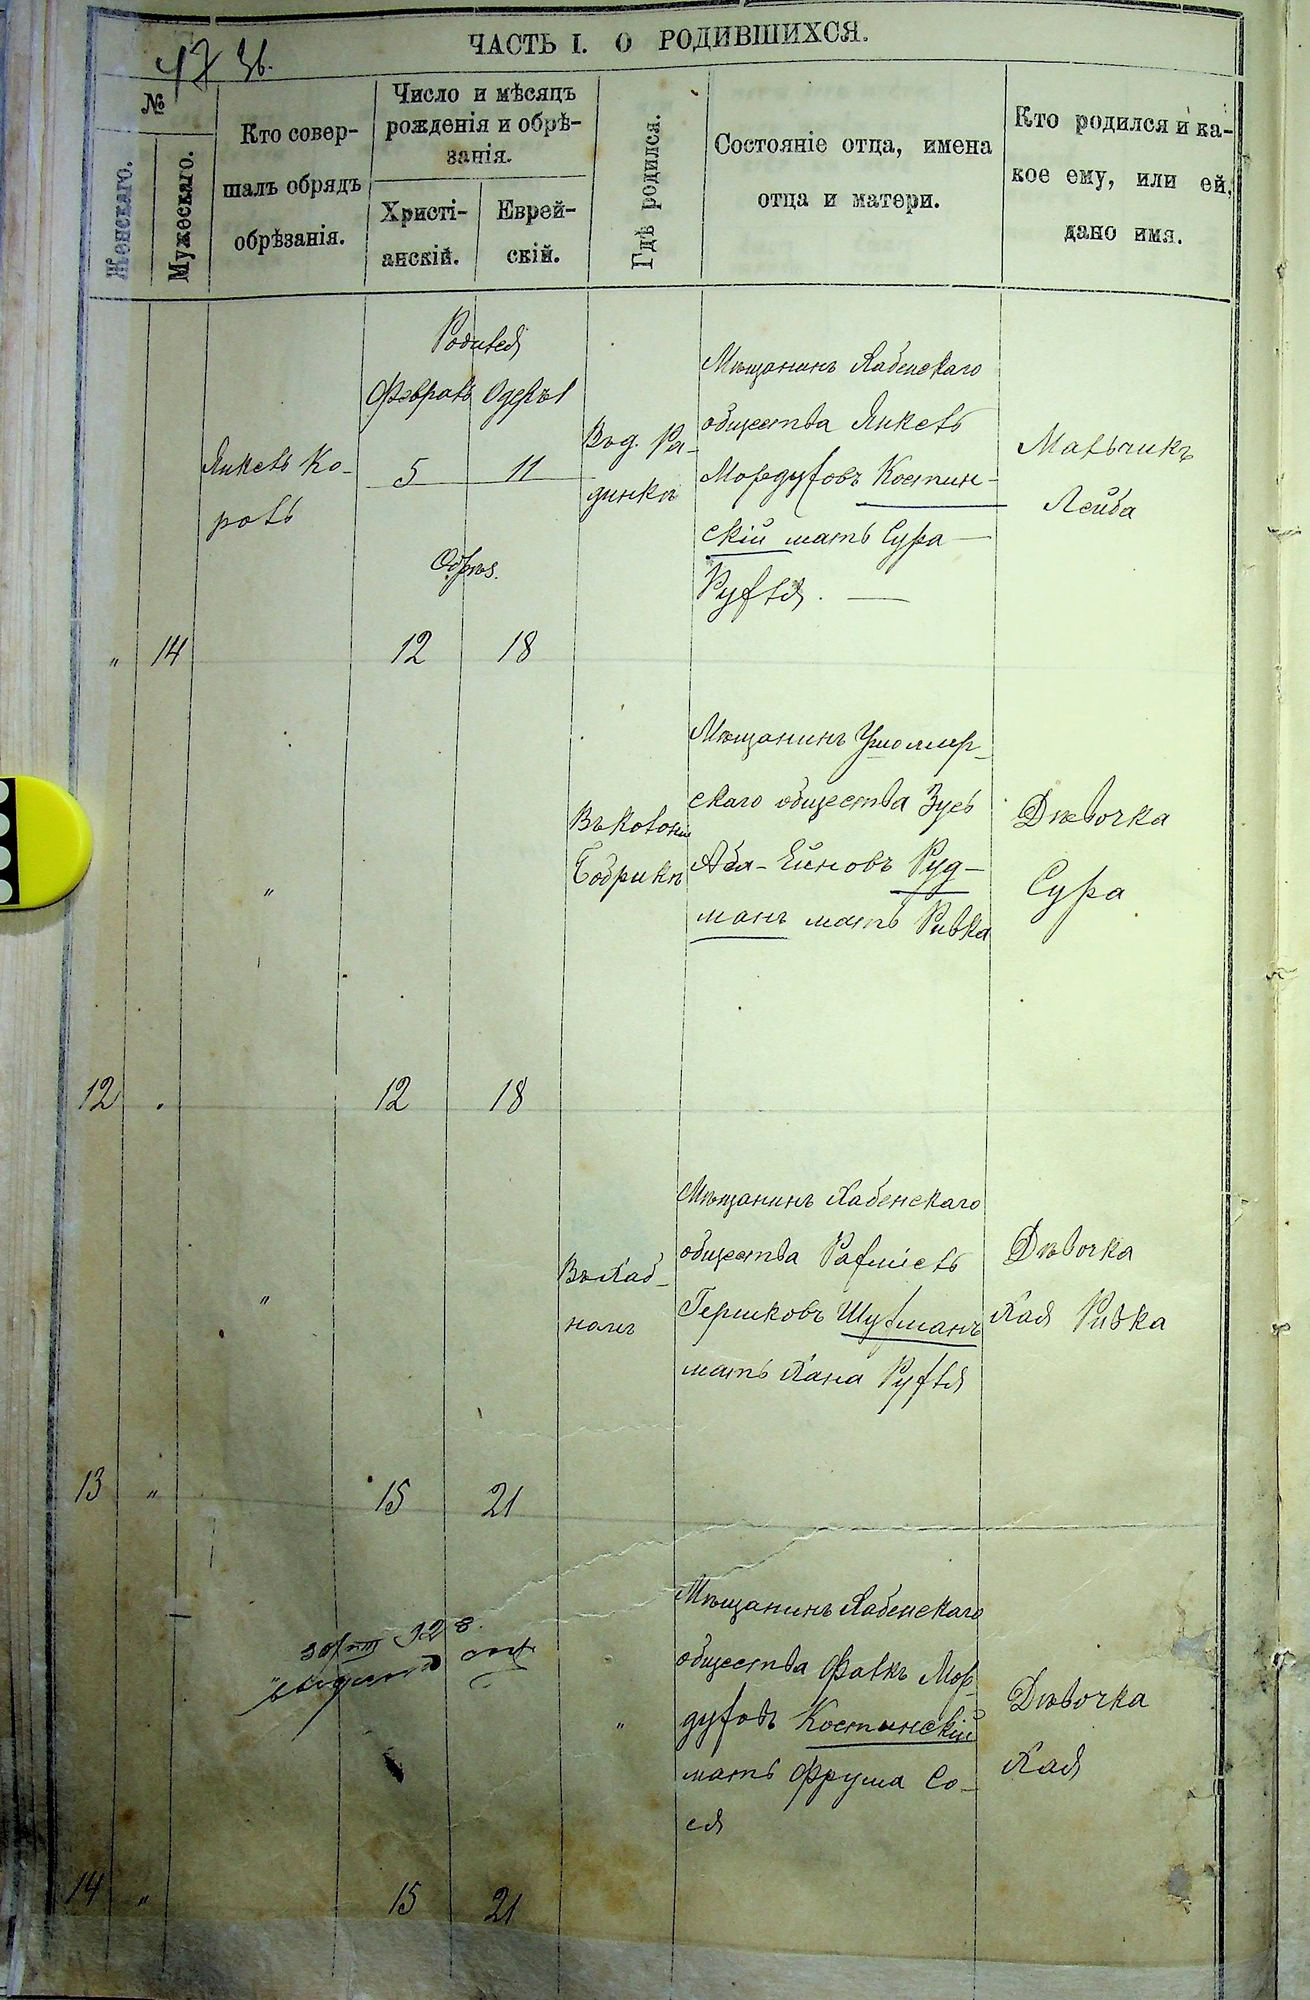 ЧАСТЬ I. О РОДИВШИХСЯ.
№
Женскаго.
Мужескаго.
Кто совер-
шалъ обрядъ
обрѣзанія.
Число и мѣсяцъ
рожденія и обрѣ-
занія.
Христі-
анскій.
Еврей-
скій.
Гдѣ родился.
Состояніе отца, имена
отца и матери.
Кто родился и ка-
кое ему, или ей,
дано имя.
" 14
Янкель Ко-
роль
Родился
Февраль
5 11
Обрѣз.
12 18
Въ д. Ра-
динкѣ
Мѣщанинъ Хабенскаго
общества Янкель
Мордуховъ Костин-
скій мать Сура
Рухля.
Мальчикъ
Лейба
12
"
12 18
Въ колоніи
Бобрикѣ
Мѣщанинъ Ушомир-
скаго общества Зусь
Аба- Ейновъ Руд-
манъ мать Ривка
Дѣвочка
Сура
13 "
"
15 21
Въ Хаб-
номъ
Мѣщанинъ Хабенскаго
общества Рахміель
Гершковъ Шухманъ
мать Хана Рухля
Дѣвочка
Хая Ривка
14 "
15 21
"
Мѣщанинъ Хабенскаго
общества Фалкъ Мор-
духовъ Костинскій
мать Фрума Со-
ся
Дѣвочка
Хая